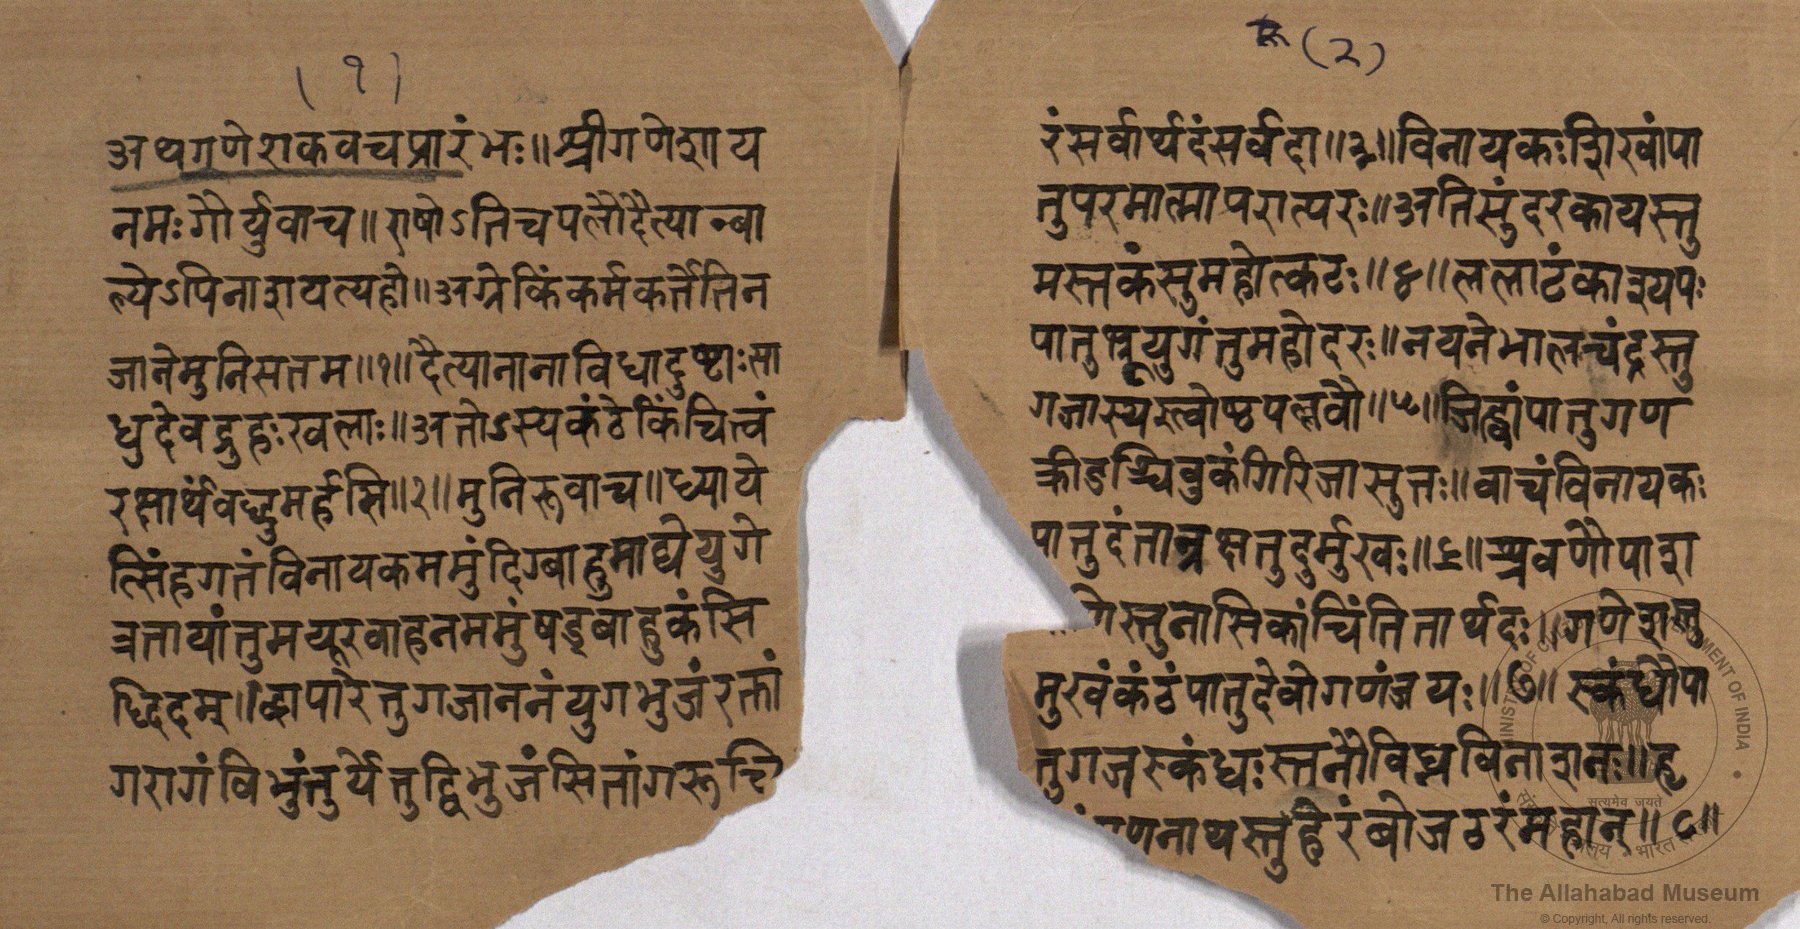 (१)
अथगणेशकवचप्रारंभः॥श्रीगणेशाय
नमःगौर्युवाच॥राषोऽतिचपलौदैत्यान्बा
ल्येऽपिनाशयत्यहो॥अग्रेकिंकर्मकर्त्तेतिन
जानेमुनिसत्तम॥१॥दैत्यानानाविधादुष्टाःसा
धुदेवद्रुहःखलाः॥अतोऽस्यकंठेकिंचित्त्वं
रक्षार्थंवद्धुमर्हसि॥२॥मुनिरूवाच॥ध्याये
त्सिंहगतंविनायकममुंदिग्बाहुमाद्येयुगे
त्रेतायांतुमयूरवाहनममुंषड्बाहुकंसि
द्धिदम्॥द्वापारेतुगजाननंयुगभुजंरक्तां
गरागंविभुंतुर्येतुद्विभुजंसितांगरूचि
(२)
रंसर्वार्थदंसर्वदा॥३॥विनायकःशिखांपा
तुपरमात्मापरात्परः॥अतिसुंदरकायस्तु
मस्तकंसुमहोत्कटः॥४॥ललाटंकाश्यपः
पातुभ्रूयुगंतुमहोदरः॥नयनेभालचंद्रस्तु
गजास्यस्त्वोष्ठपल्लवौ॥५॥जिह्वांपातुगण
क्रीडश्चिबुकंगिरिजासुतः॥वाचंविनायकः
पातुदंतान्रक्षतुदुर्मुखः॥६॥श्रवणौपाश
स्तुनासिकांचिंतितार्थदः॥गणेशस्तु
मुखंकंठंपातुदेवोगणंजयः॥७॥स्कंधौपा
तुगजस्कंधःस्तनौविघ्नविनाशनः॥हृ
गणनाथस्तुहेरंबोजठरंमहान्॥८॥
सत्यमेव जयते
The Allahabad Museum
© Copyright, All rights reserved.